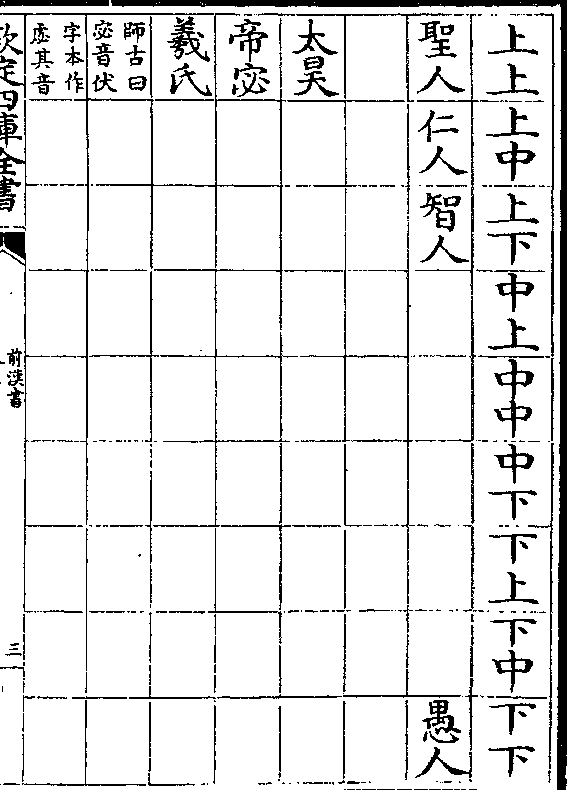 上上 上中 上下 中上 中中 中下 下上 下中 下下
聖人 仁人 智人 愚人
太昊
帝宓
羲氏
師古曰
宓音伏
字本作
虙其音
欽定四庫全書
前漢書
三